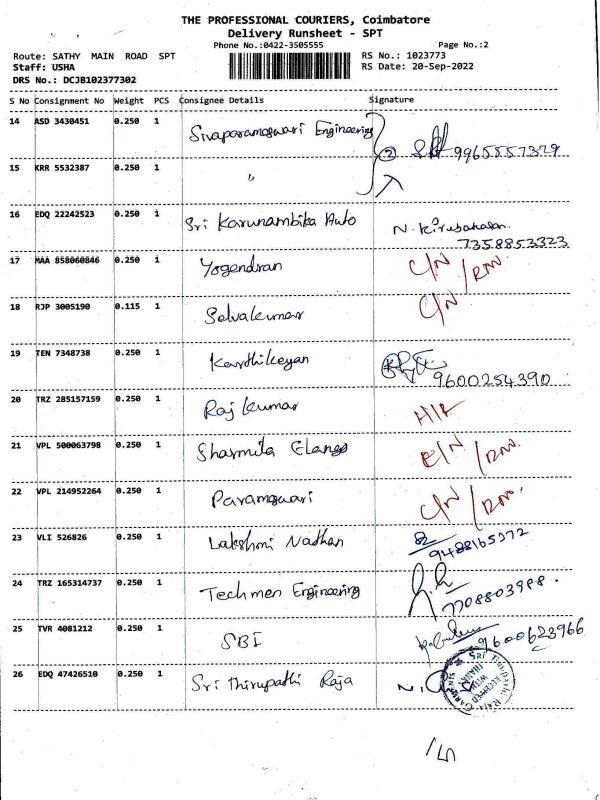 THE PROFESSIONAL COURIERS, Coimbatore
Delivery Runsheet - SPT
Phone No.:0422-3505555 Page No.:2
Route: SATHY MAIN ROAD SPT RS No.: 1023773
Staff: USHA RS Date: 20-Sep-2022
DRS No.: DCJB102377302
S No Consignment No Weight PCS Consignee Details Signature
14 ASD 3430451 0.250 1 Sivaparameswari Engineering 2 9965557329
15 KRR 5532387 0.250 1 "
16 EDQ 22242523 0.250 1 Sri Karunambika Auto N. Kirubakaran
7358853323
17 MAA 858060846 0.250 1 Yogendran C/N / RNN.
18 RJP 3005190 0.115 1 Selvakumar C/N
19 TEN 7348738 0.250 1 Karthikeyan
9600254390
20 TRZ 285157159 0.250 1 Raj kumar
21 VPL 500063798 0.250 1 Sharmila Elango
22 VPL 214952264 0.250 1 Parameswari C/N / RNN.
23 VLI 526826 0.250 1 Lakshmi Nathan
9488165372
24 TRZ 165314737 0.250 1 Techmen Engineering
7708803988.
25 TVR 4081212 0.250 1 SBI 9600623966
26 EDQ 47426510 0.250 1 Sri thirupathi Raja
SRI TIRUPATHI RAJA GARMENTS
RECEIVED
WITH
THANKS